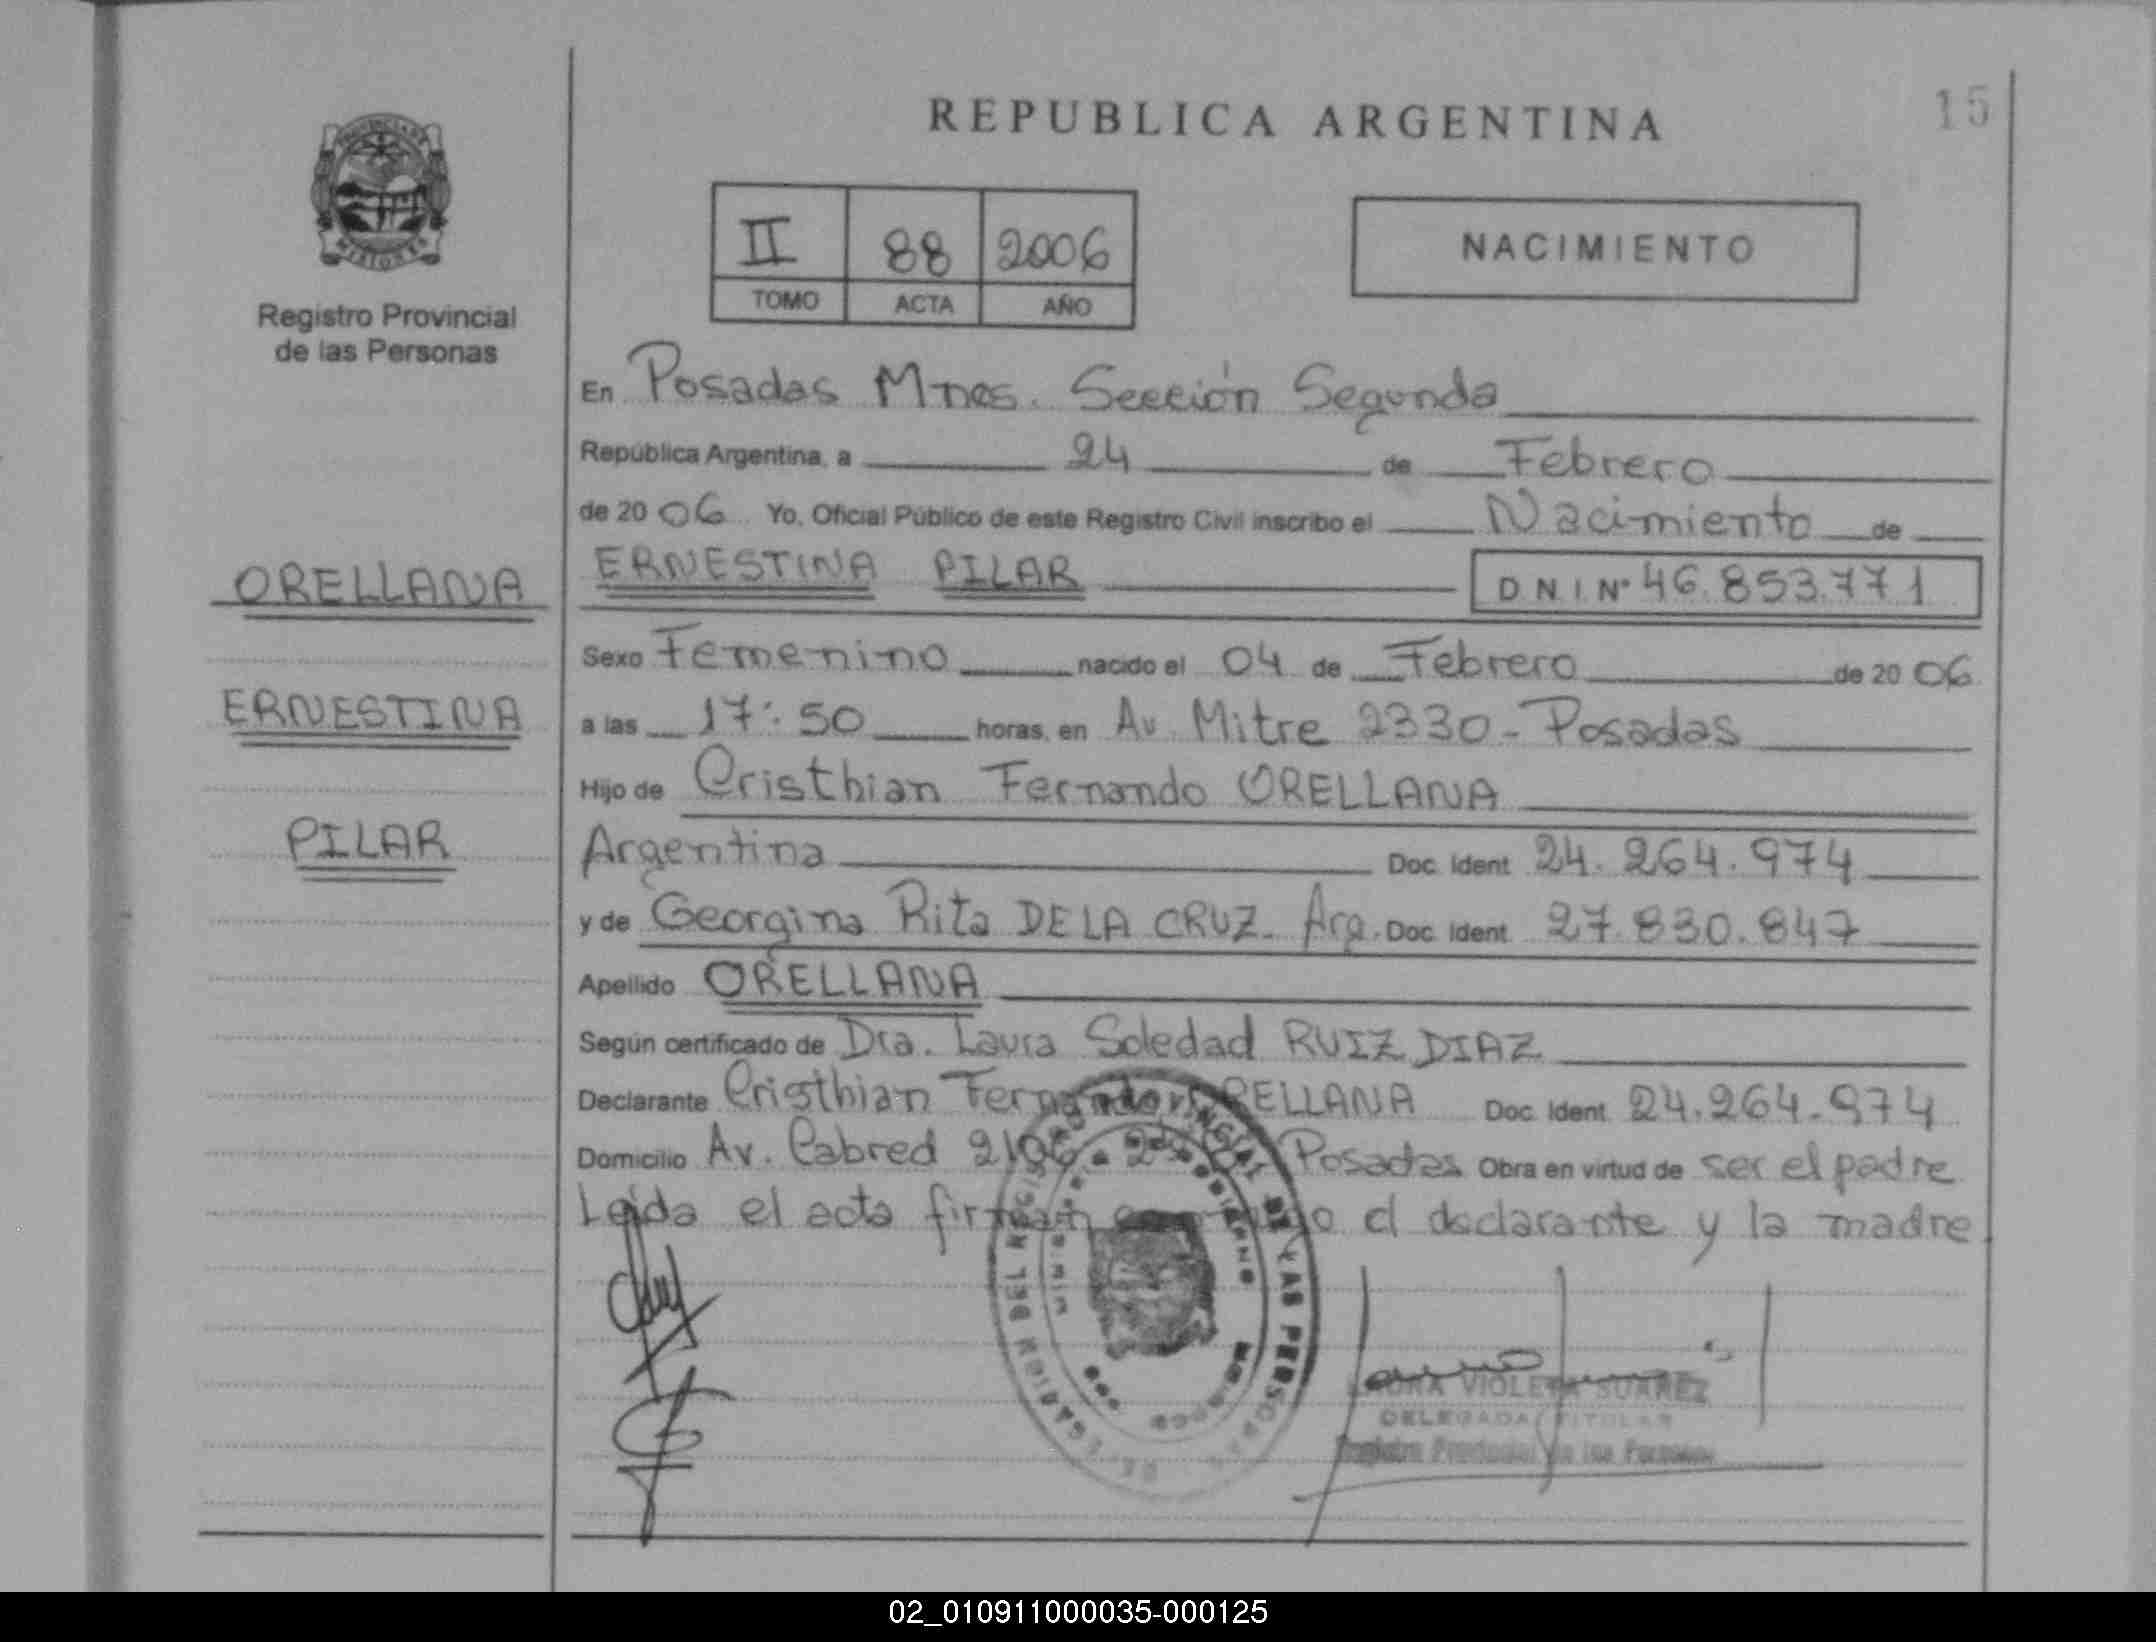 REPUBLICA ARGENTINA
15
II 88 2006
TOMO ACTA AÑO
NACIMIENTO
Registro Provincial
de las Personas
En Posadas Mnes. Sección Segunda
República Argentina, a 24 de Febrero
de 2006 Yo, Oficial Público de este Registro Civil inscribo el Nacimiento de
ORELLANA
ERNESTINA PILAR D.N.I. Nº 46.853.771
Sexo Femenino nacido el 04 de Febrero de 2006
ERNESTINA
a las 17:50 horas, en Av. Mitre 2330 - Posadas
Hijo de Cristhian Fernando ORELLANA
PILAR
Argentina Doc. Ident. 24.264.974
y de Georgina Rita DE LA CRUZ. Arg. Doc. Ident. 27.830.847
Apellido ORELLANA
Según certificado de Dra. Laura Soledad RUIZ DIAZ
Declarante Cristhian Fernando ORELLANA Doc. Ident. 24.264.974
Domicilio Av. Cabred Posadas Obra en virtud de ser el padre
Leída el acta firman el declarante y la madre
DEL REGISTRO PROVINCIAL DE LAS PERSONAS
VIOLETA SUAREZ
DELEGADA TITULAR
Registro Provincial de las Personas
02_010911000035-000125